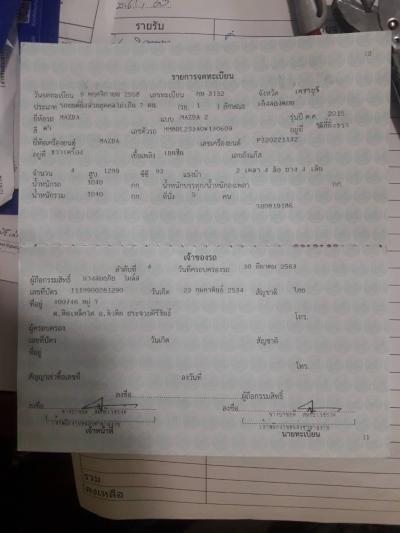 รายรับ
10
รายการจดทะเบียน
วันจดทะเบียน 9 พฤศจิกายน 2558 เลขทะเบียน กน 3132 จังหวัด เพชรบุรี
ประเภท รถยนต์นั่งส่วนบุคคลไม่เกิน 7 คน (รย. 1 ) ลักษณะ เก๋งสองตอน
ยี่ห้อรถ MAZDA แบบ MAZDA 2 รุ่นปี ค.ศ. 2015
สี ดำ เลขตัวรถ อยู่ที่
ยี่ห้อเครื่องยนต์ MAZDA เลขเครื่องยนต์ P520221142
อยู่ที่ ขวาเครื่อง เชื้อเพลิง เบนซิน เลขถังแก๊ส
จำนวน 4 สูบ 1299 ซีซี 93 แรงม้า 2 เพลา 4 ล้อ ยาง 4 เส้น
น้ำหนักรถ 1040 กก. น้ำหนักบรรทุก/น้ำหนักลงเพลา กก.
น้ำหนักรวม 1040 กก. ที่นั่ง 5 คน
เจ้าของรถ
ลำดับที่ วันที่ครอบครองรถ 30 กันยายน 2563
ผู้ถือกรรมสิทธิ์
เลขที่บัตร 1119900261290 วันเกิด 23 กุมภาพันธ์ 2534 สัญชาติ ไทย
ที่อยู่ 400/46 หมู่ 7
โทร.
ผู้ครอบครอง
เลขที่บัตร วันเกิด สัญชาติ
ที่อยู่
โทร.
สัญญาเช่าซื้อเลขที่ ลงวันที่
ลงชื่อ ผู้ถือกรรมสิทธิ์
ลงชื่อ ลงชื่อ
เจ้าหน้าที่ นายทะเบียน
11
รวม
คงเหลือ